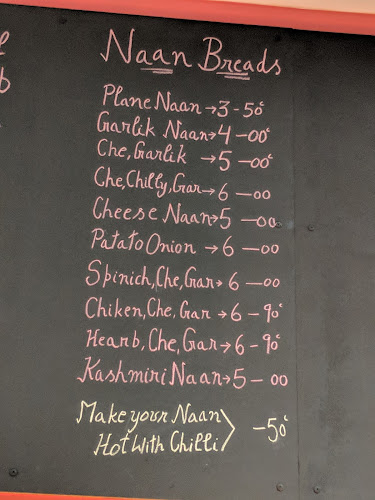 Naan Breads
Plane Naan → 3-50c
Garlik Naan → 4-00c
Che,Garlik → 5-00c
Che,Chilly,Gar → 6-00
Cheese Naan → 5-00
Patato Onion → 6-00
Spinich,Che,Gar → 6-00
Chiken,Che,Gar → 6-90c
Hearb,Che,Gar → 6-90c
Kashmiri Naan → 5-00
Make your Naan
Hot With Chilli > -50c